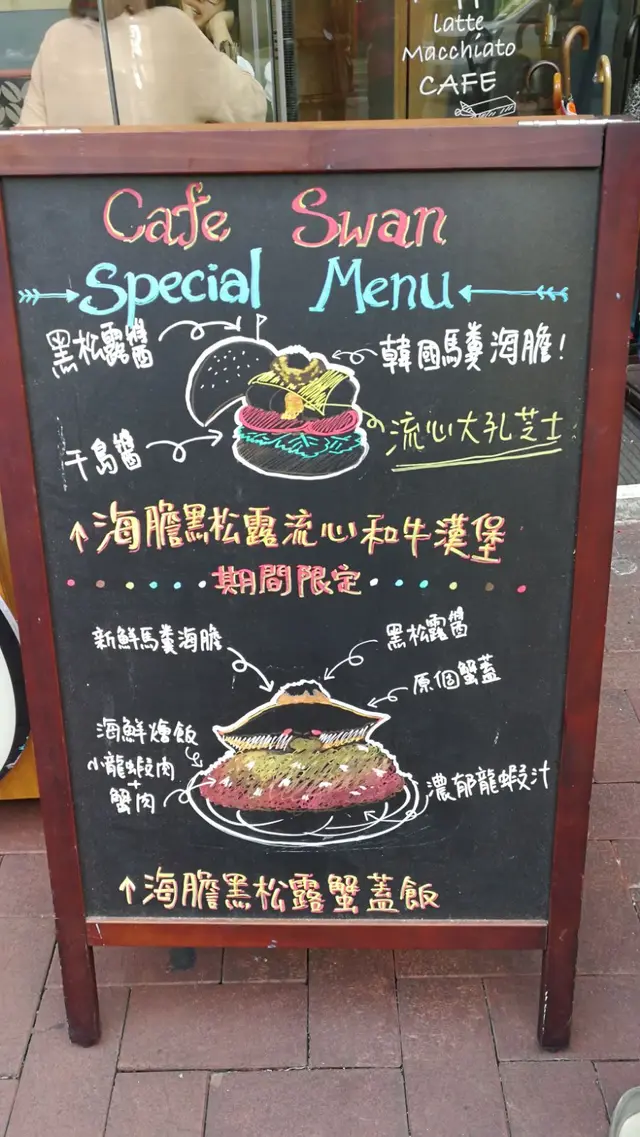 latte
Macchiato
CAFE
Cafe Swan
Special Menu
黑松露醬
韓國馬糞海膽!
流心大孔芝士
千島醬
海膽黑松露流心和牛漢堡
期間限定
新鮮馬糞海膽
黑松露醬
原個蟹蓋
海鮮燴飯
小龍蝦肉
+
蟹肉
濃郁龍蝦汁
海膽黑松露蟹蓋飯